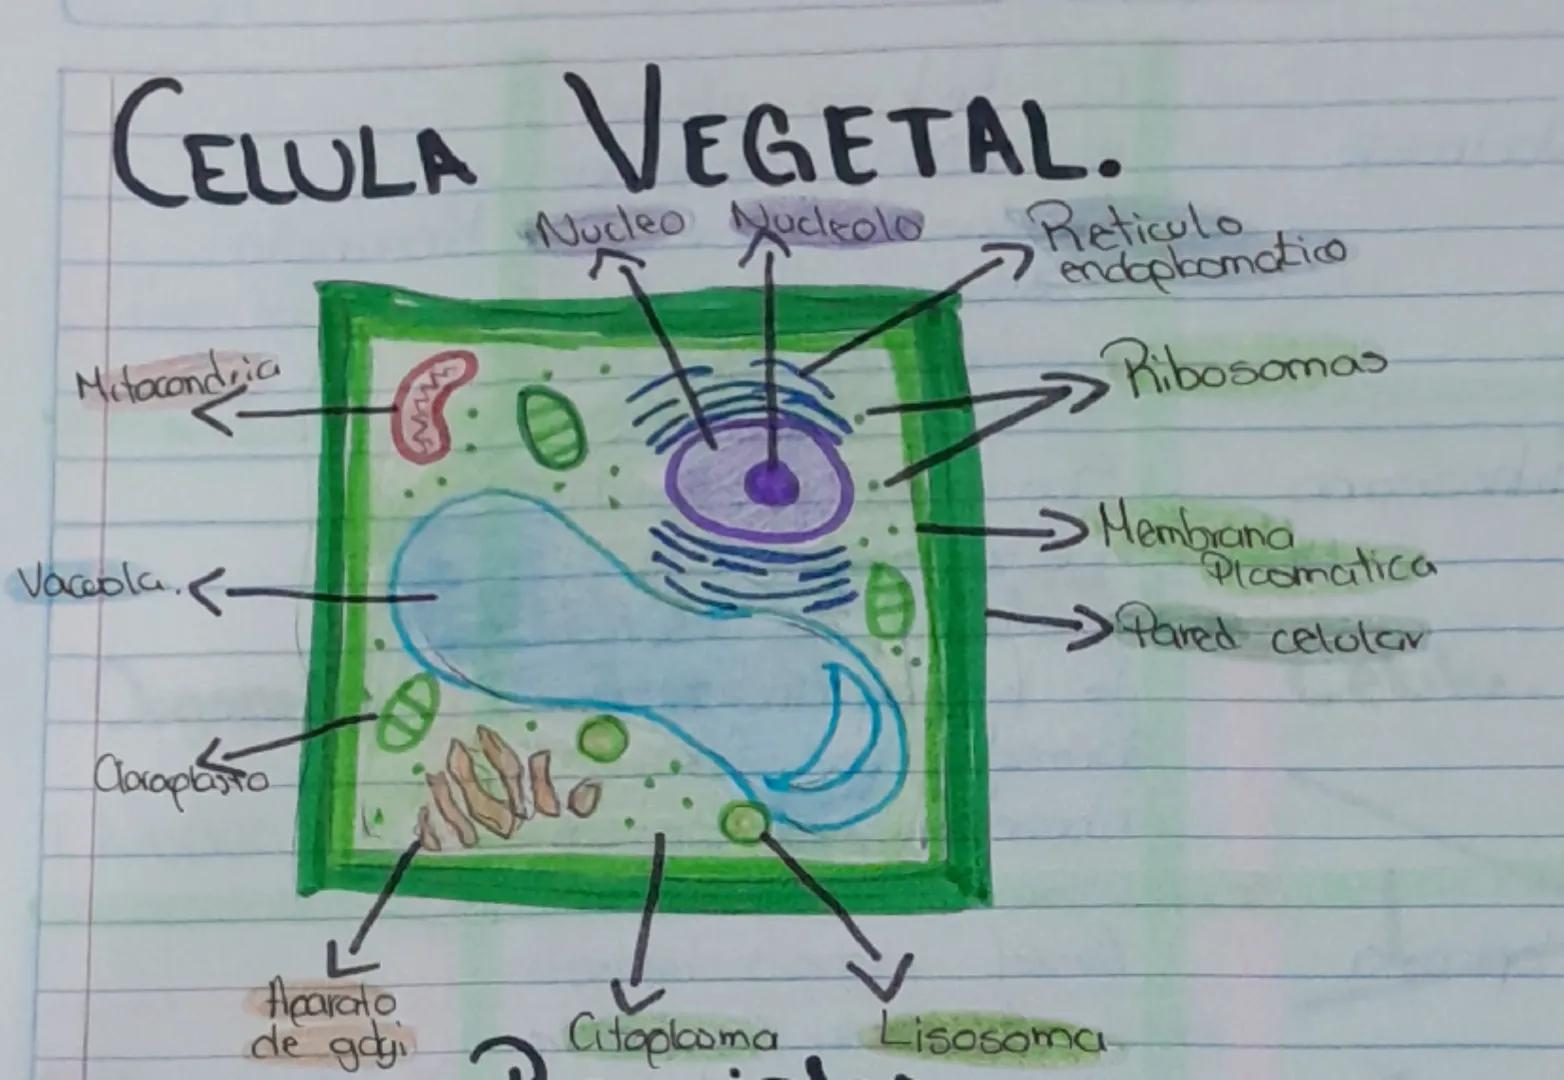 CELULA VEGETAL.
Nucleo Nucleolo Reticulo
endoplasmatico
Mitocondria
Ribosomas
Membrana
Plasmatica
Vacuola.
Pared celular
Cloroplasto
Aparato
de golgi
Citoplasma
Lisosoma